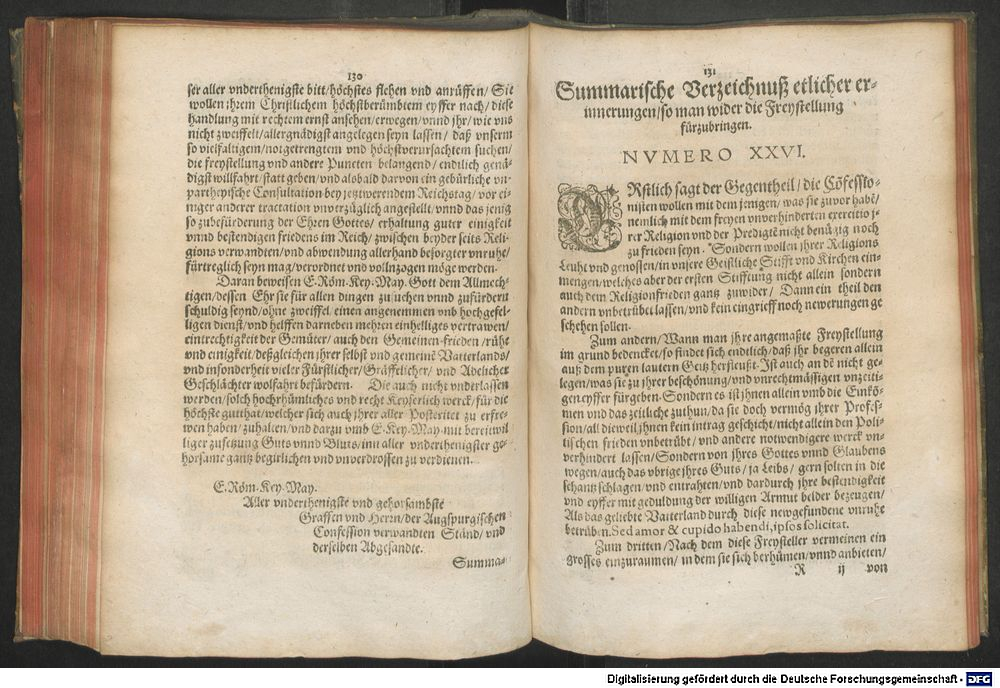 130
ser aller vnderthenigste bitt/höchstes flehen vnd anrüffen/ Sie
wollen jhrem Christlichem höchstberümbtem eyffer nach/ diese
handlung mit rechtem ernst ansehen/erwegen/vnnd jhr/wie vns
nicht zweiffelt/allergnädigst angelegen seyn lassen/ daß vnserm
so vielfaltigem/notgetrengtem vnd höchstverursachtem suchen/
die freystellung vnd andere Puncten belangend/ endtlich genä-
digst willfahrt/statt geben/vnd alsbald darvon ein gebürliche vn-
partheysche Consultation bey jetztwerendem Reichstag/ vor ei-
niger anderer tractation vnverzüglich angestellt/vnnd das jenig
so zubefürderung der Ehren Gottes/ erhaltung guter einigkeit
vnnd bestendigen friedens im Reich/ zwischen beyder seits Reli-
gions verwandten/vnd abwendung allerhand besorgter vnruhe/
fürtreglich seyn mag/verordnet vnd vollnzogen möge werden.
Daran beweisen E.Röm.Key.May. Gott dem Allmech-
tigen/dessen Ehr sie für allen dingen zusuchen vnnd zufürdern
schuldig seynd/ohne zweiffel einen angenemmen vnb hochgefel-
ligen dienst/vnd helffen darneben mehren einhelliges vertrawen/
eintrechtigkeit der Gemüter/ auch den Gemeinen-frieden /rühe
vnd einigkeit/deßgleichen jhrer selbst vnd gemeine Vatterlands/
vnd insonderheit vieler Fürstlicher/Gräffelicher/ vnd Adelicher
Geschlächter wolfahrt befürdern. Die auch nicht vnderlassen
werden/solch hochrhümliches vnd recht Keyserlich werck/für die
höchste gutthat/welcher sich auch jhrer aller Posteritet zu erfre-
wen haben/zuhalten/vnd darzu vmb E.Key.May.mit bereitwil
liger zusetzung Guts vnnd Bluts/inn aller vnderthenigster ge-
horsame gantz begirlichen vnd vnverdrossen zu verdienen.
E.Röm.Key.May.
Aller vnderthenigste vnd gehorsambste
Graffen vnd Herrn/der Augspurgischen
Confession verwandten Ständ/ vnd
derselben Abgesandte.
Summa-
131
Summarische Verzeichnuß etlicher er-
innerungen/so man wider die Freystellung
fürzubringen.
NVMERO XXVI.
ERstlich sagt der Gegentheil/ die Cōfessio-
nisten wollen mit dem jenigen/ was sie zuvor habē/
nemlich mit dem freyen vnverhinderten exercitio j-
rer Religion vnd der Predigtē nicht benügig noch
zu frieden seyn. Sondern wollen jhrer Religions
Leuht vnd genossen/in vnsere Geistliche Stifft vnd Kirchen ein-
mengen/welches aber der ersten Stifftung nicht allein sondern
auch dem Religionfrieden gantz zuwider/ Dann ein theil den
andern vnbetrübet lassen/vnd kein eingrieff noch newerungen ge
schehen sollen.
Zum andern/Wann man jhre angemaßte Freystellung
im grund bedencket/so findet sich endtlich/daß jhr begeren allein
auß dem puren lautern Geitz herfleußt. Ist auch an dē nicht ge-
legen/was sie zu jhrer beschönung/vnd vnrechtmässigen vnzeiti-
gen eyffer fürgeben. Sondern es ist jhnen allein vmb die Einkö-
men vnd das zeitliche zuthun/da sie doch vermög jhrer Profes-
sion/all dieweil jhnen kein intrag geschicht/nicht allein den Poli-
tischen frieden vnbetrübt/ vnd andere notwendigere werck vn-
verhindert lassen/Sondern von jhres Gottes vnnd Glaubens
wegen/auch das vbrige jhres Guts/ ja Leibs/ gern solten in die
schantz schlagen/vnd entrahten/vnd dardurch jhre bestendigkeit
vnd eyffer mit geduldung der willigen Armut belder bezeugen/
Als das geliebte Vatterland durch diese newgefundene vnruhe
betrüben. Sed amor & cupido habendi, ipsos solicitat.
Zum dritten/Nach dem diese Freysteller vermeinen ein
grosses einzuraumen/ in dem sie sich berhümen/vnnd anbieten/
R ij von
Digitalisierung gefördert durch die Deutsche Forschungsgemeinschaft - DFG